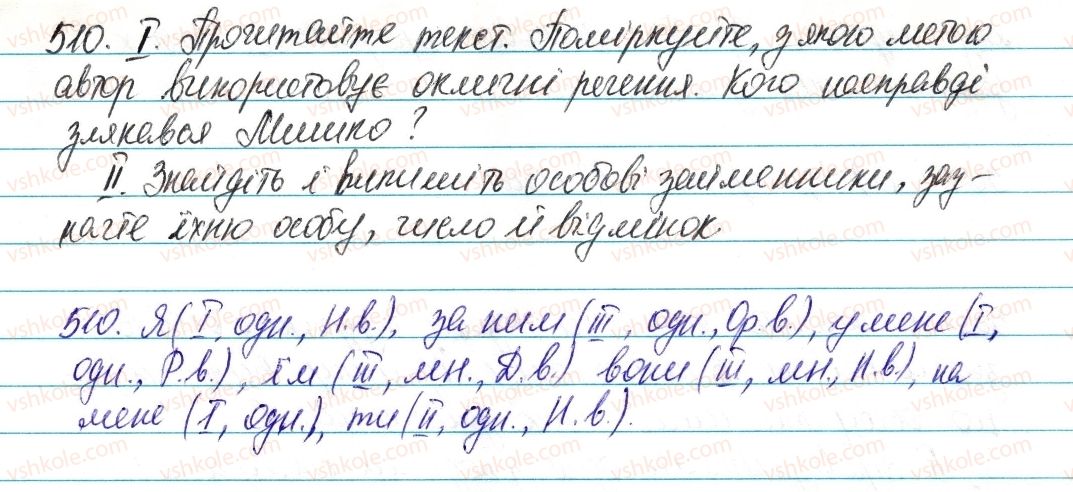 510. I. Прочитайте текст. Поміркуйте, з якою метою
автор використовує окличні речення. Кого насправді
злякався Мишко?
II. Знайдіть і випишіть особові займенники, заз-
начте їхню особу, число й відмінок.
510. Я (I, одн., Н.в.), за ним (III, одн., Ор.в.), у мене (I,
одн., Р.в.), їм (III, мн., Д.в.) вони (III, мн., Н.в), на
мене (I, одн.), ти (II, одн., Н.в.).